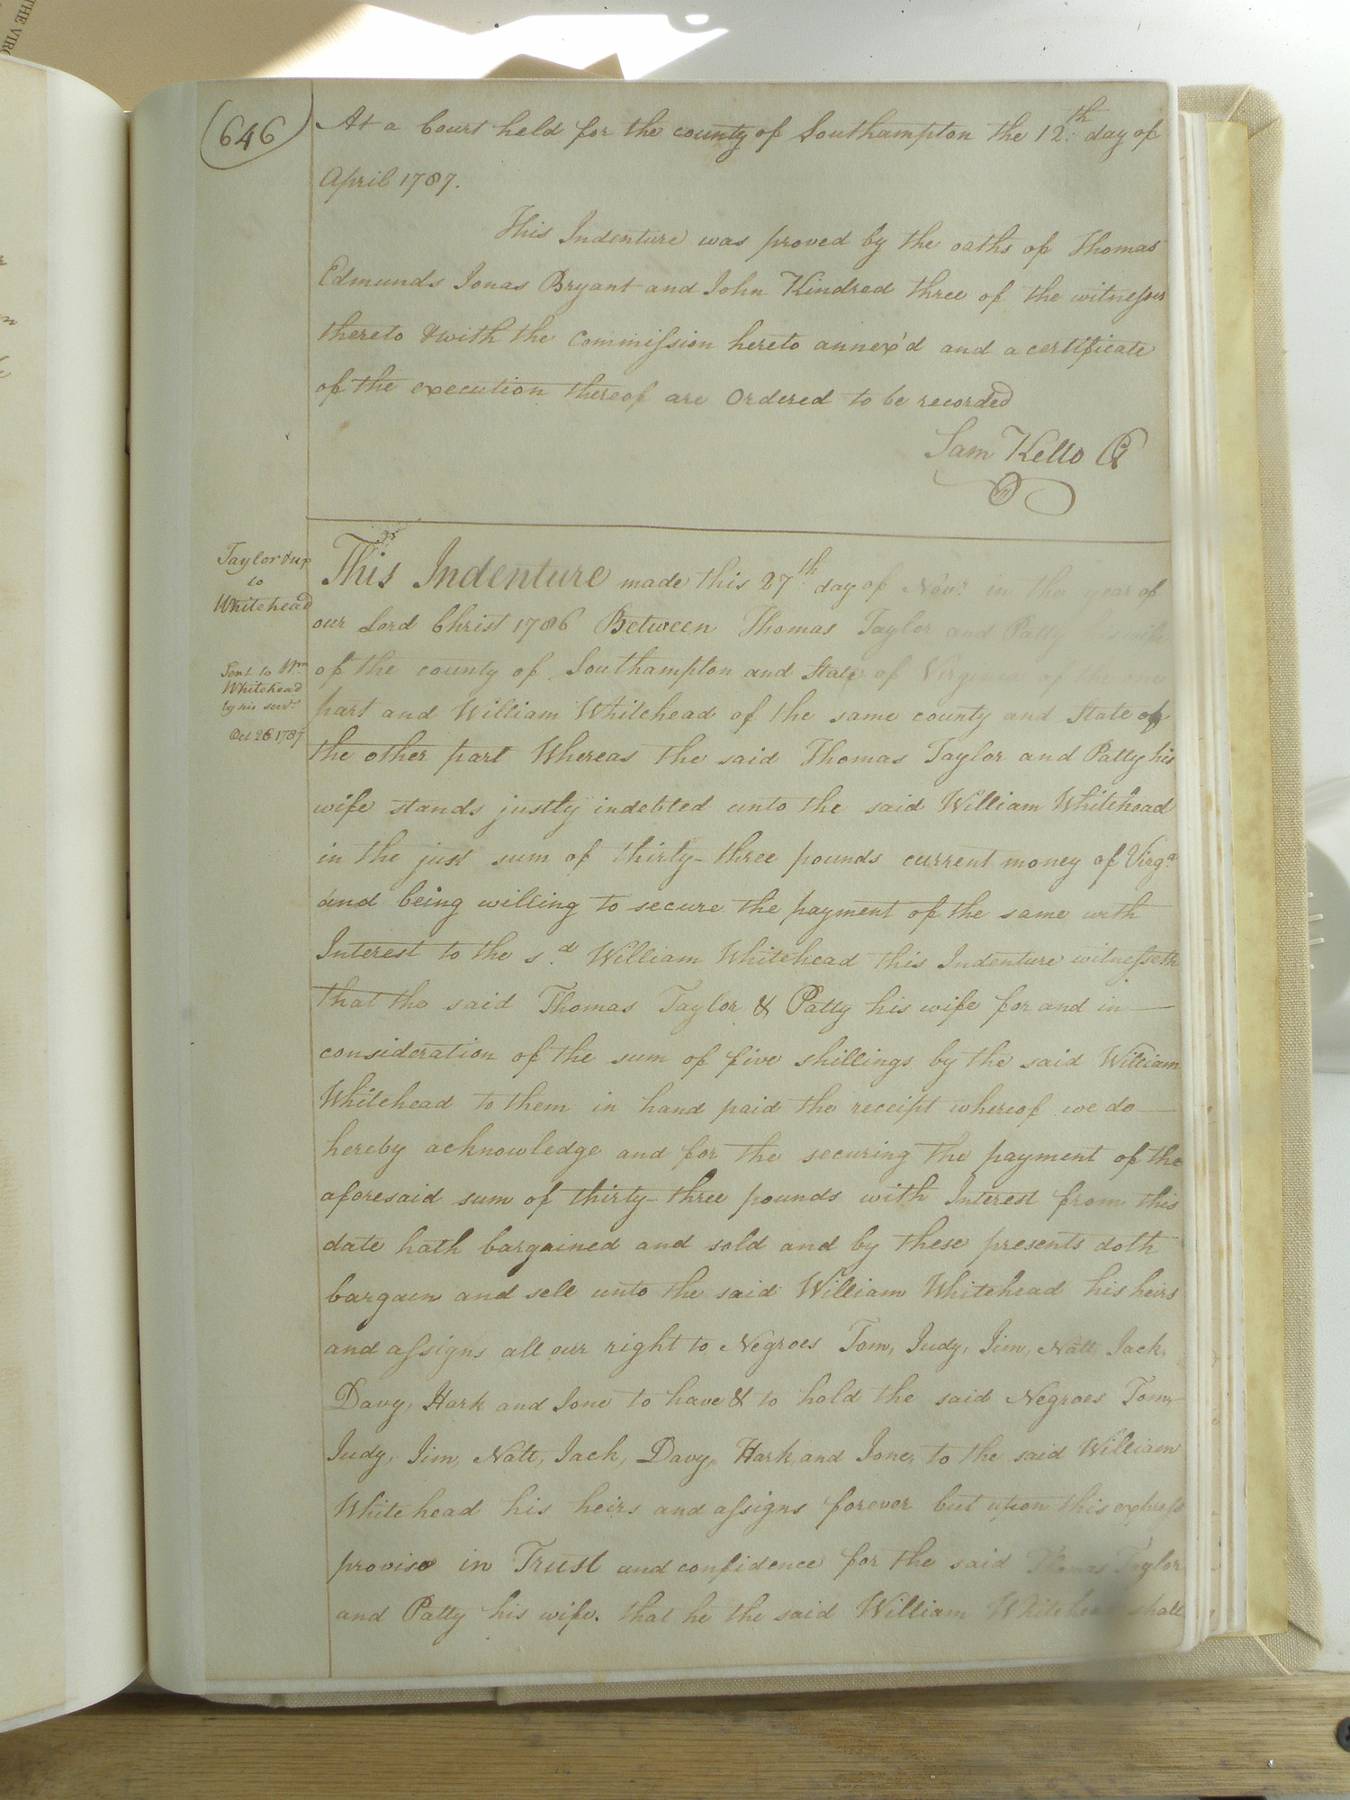 THE VIRG
(646)
At a Court held for the county of Southampton the 12th day of
April 1787.
This Indenture was proved by the oaths of Thomas
Edmunds Jonas Bryant and John Kindred three of the witnesses
thereto & with the Commission hereto annex'd and a certificate
of the execution thereof are Ordered to be recorded
Sam Kello
Taylor & ux
to
Whitehead
Sent to Wm
Whitehead
by his servt
Oct 26 1787
This Indenture made this 27th day of Novr in the year of
our Lord Christ 1786 Between Thomas Taylor and Patty his wife
of the county of Southampton and State of Virginia of the one
part and William Whitehead of the same county and State of
the other part Whereas the said Thomas Taylor and Patty his
wife stands justly indebted unto the said William Whitehead
in the just sum of thirty-three pounds current money of Virga
and being willing to secure the payment of the same with
Interest to the sd William Whitehead this Indenture witnesseth
that the said Thomas Taylor & Patty his wife for and in
consideration of the sum of five shillings by the said William
Whitehead to them in hand paid the receipt whereof we do
hereby acknowledge and for the securing the payment of the
aforesaid sum of thirty-three pounds with Interest from this
date hath bargained and sold and by these presents doth
bargain and sell unto the said William Whitehead his heirs
and assigns all our right to Negroes Tom, Judy, Jim, Natt, Jack,
Davy, Hark and Jone to have & to hold the said Negroes Tom,
Judy, Jim, Natt, Jack, Davy, Hark and Jone, to the said William
Whitehead his heirs and assigns forever but upon this express
proviso in Trust and confidence for the said Thomas Taylor
and Patty his wife. that he the said William Whitehead shall